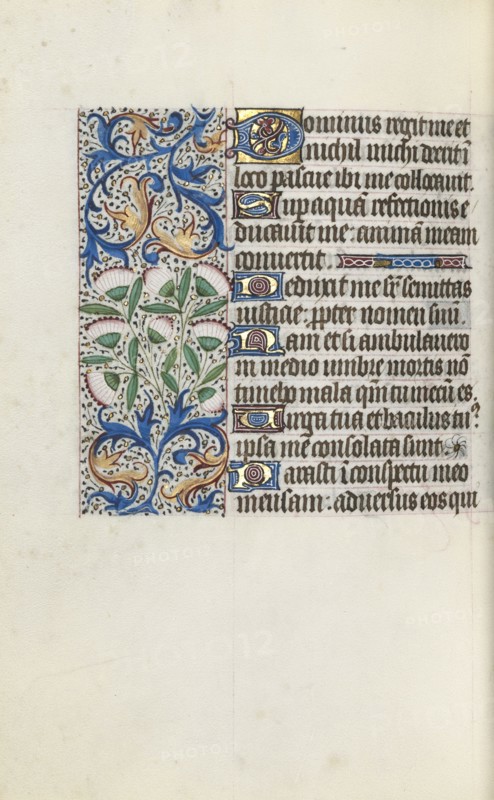 Dominus regit me et
nichil michi deerit ī
loco pascue ibi me collocauit.
Sup aquā refectionis e
ducauit me: animā meam
conuertit.
Deduxit me sr̄ semittas
iusticie: ꝓpter nomen suū.
Nam et si ambulauero
in medio umbre mortis nō
timebo mala qm̄ tu mecū es.
Virga tua et baculus tuꝰ
ipsa me consolata sunt.
Parasti ī conspectu meo
mensam: aduersus eos qui